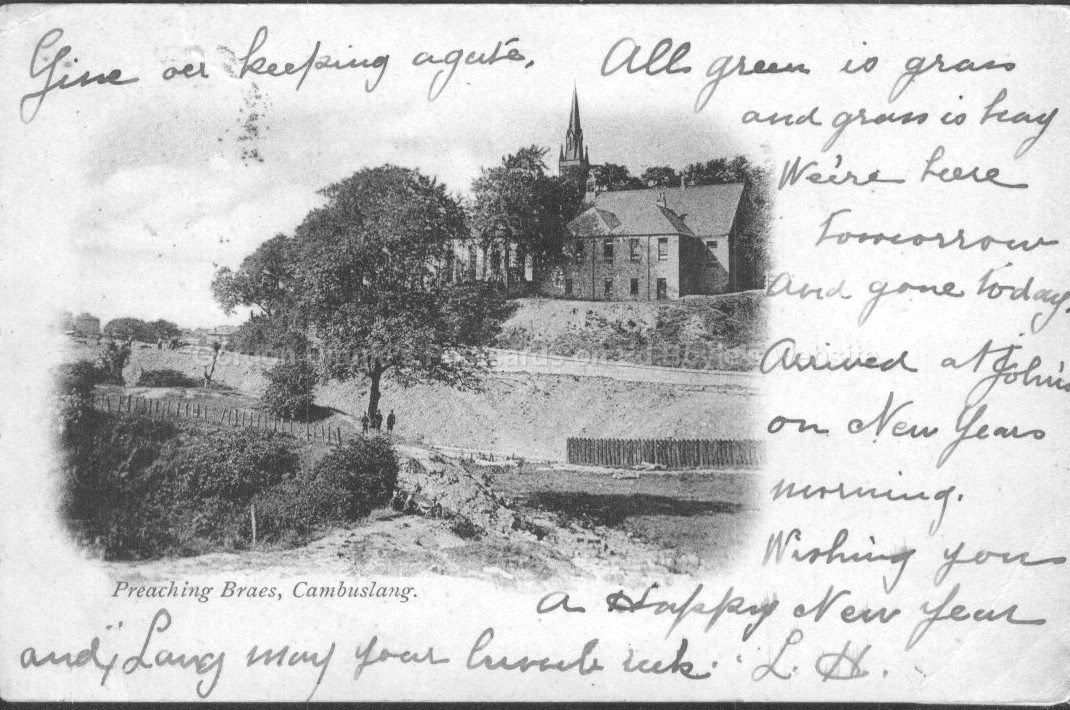 Give oer keeping agate,
All green is grass
and grass is hay
We're here
tomorrow
And gone today.
Arrived at John's
on New Years
morning.
Wishing you
Preaching Braes, Cambuslang.
a Happy New Year
and, "Lang may your lum reek." L. H.